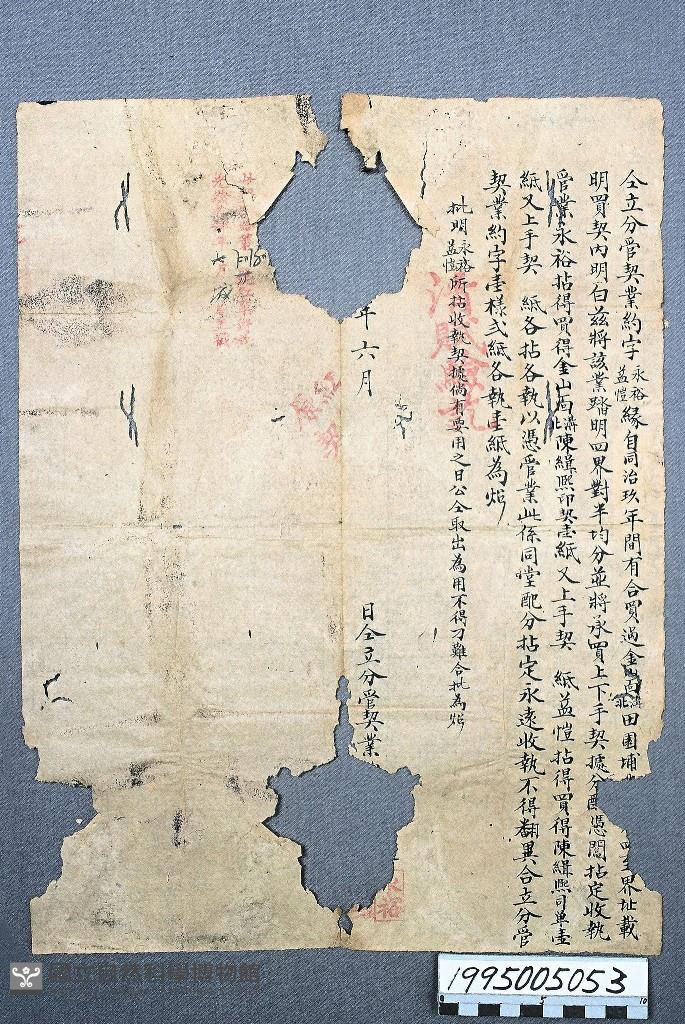 仝立分管契業約字永裕益愷緣自同治玖年間有合買過金山面溝北田園埔 四至界址載
明買契內明白茲將該業踏明四界對半均分並將承買上下手契據分配憑鬮拈定收執
管業永裕拈得買得金山面溝北陳緝熙印契壹紙又上手契 紙益愷拈得買得陳緝熙司單壹
紙又上手契 紙各拈各執以憑管業此係同堂配分拈定永遠收執不得翻異合立分管
契業約字壹樣弍紙各執壹紙為炤
批明永裕益愷所拈收執契據倘有要用之日公仝取出為用不得刁難合批為炤
年六月
日仝立分管契業
驗
紅契
裕
國立自然科學博物館
1995005053